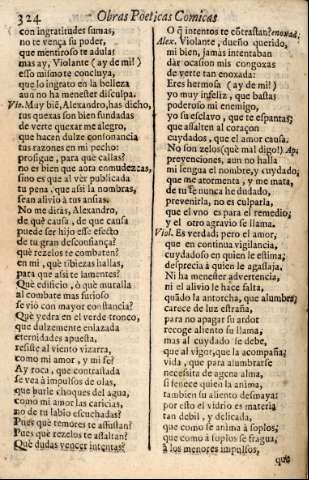 324 Obras Poeticas Comicas
con ingratitudes sumas,
no te vença su poder,
que mentiroso te adula:
mas ay, Violante (ay de mi!)
esso mismo te concluya,
que lo ingrato en la belleza
aun no ha menester disculpa.
Vio. Muy biẽ, Alexandro, has dicho,
tus quexas son bien fundadas
de verte quexar me alegro,
que hacen dulze consonancia
tus razones en mi pecho:
prosigue, para què callas?
no es bien que aora enmudezcas,
sino es que al ver publicada
tu pena, que assi la nombras,
sean alivio à tus ansias.
No me diràs, Alexandro,
de què causa, de que causa
puede ser hijo esse efecto
de tu gran desconfiança?
què rezelos te combaten?
en mi, què tibiezas hallas,
para que assi te lamentes?
Què edificio, ò què muralla
al combate mas furioso
se viò con mayor constancia?
Què yedra en el verde tronco,
que dulzemente enlazada
eternidades apuesta,
resiste al viento vizarra,
como mi amor, y mi fè?
Ay roca, que contrastada
se vea à impulsos de olas,
que burle choques del agua,
como mi amor las caricias,
no de tu labio escuchadas?
Pues què temores te assustan?
Pues què rezelos te assaltan?
Què dudas vencer intentas?
O q̃ intentos te cõtrastan? enoxad.
Alex. Violante, dueño querido,
mi bien, jamàs intentaban
dàr ocasion mis congoxas
de verte tan enoxada:
Eres hermosa (ay de mi)
yo muy infeliz, que bastas
poderoso mi enemigo,
yo su esclavo, que te espantas;
que assalten al coraçon
cuydados, que el amor causa.
No son zelos (què mal digo!) Ap.
prevenciones, aun no halla
mi lengua el nombre, y cuydado;
que me atormenta, y me mata,
de tu fe nunca he dudado,
prevenirla, no es culparla,
que el vno es para el remedio;
y el otro agravio se llama.
Viol. Es verdad; pero el amor,
que en continua vigilancia,
cuydadoso en quien le estima;
desprecia à quien le agassaja.
Ni ha menester advertencia,
ni el alivio le hace falta,
quãdo la antorcha, que alumbra,
carece de luz estraña,
para no apagar su ardor
recoge aliento su llama;
mas al cuydado se debe,
que al vigor, que la acompaña;
vida, que para alumbrarse
necessita de agena alma,
si fenece quien la anima,
tambien su aliento desmaya:
por esto el vidrio es materia
tan debil, y delicada,
que como se anima à soplos;
que como à soplos se fragua,
à los menores impulsos,
que